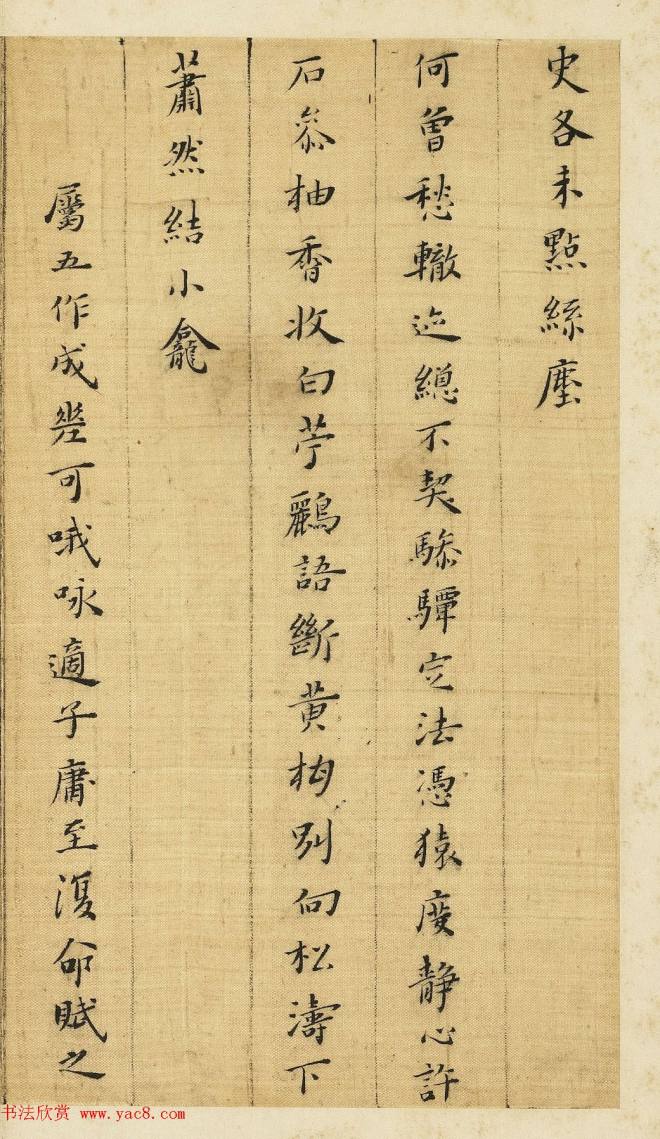 史各未點絲塵
何曾愁轍迹總不契驂驔定法憑猿度靜心許
石叅柚香收白苧鸝語斷黃梅別向松濤下
蕭然結小龕
屬五作成岦可哦咏適子庸至復命賦之
书法欣赏 www.yac8.com